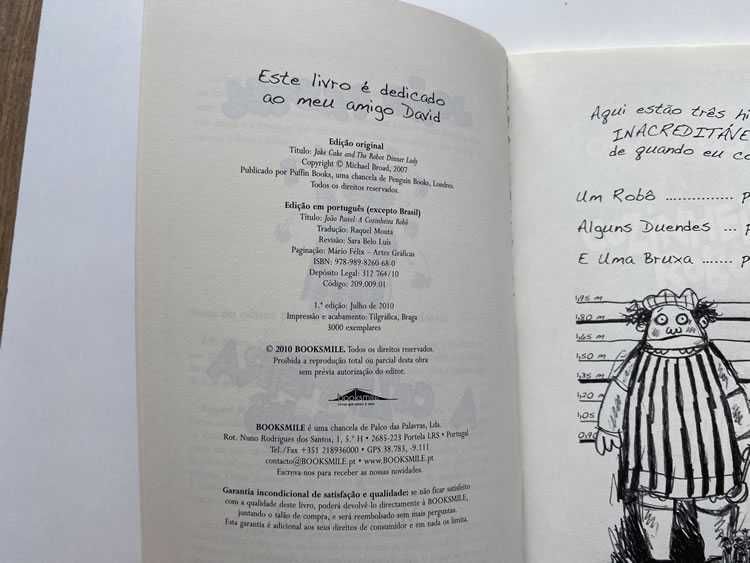 Este livro é dedicado
ao meu amigo David
Edição original
Título: Jake Cake and The Robot Dinner Lady
Copyright © Michael Broad, 2007
Publicado por Puffin Books, uma chancela de Penguin Books, Londres.
Todos os direitos reservados.
Edição em português (excepto Brasil)
Título: João Pastel: A Cozinheira Robô
Tradução: Raquel Mouta
Revisão: Sara Belo Luís
Paginação: Mário Félix – Artes Gráficas
ISBN: 978-989-8260-68-0
Depósito Legal: 312 764/10
Código: 209.009.01
1.ª edição: Julho de 2010
Impressão e acabamento: Tilgráfica, Braga
3000 exemplares
© 2010 BOOKSMILE. Todos os direitos reservados.
Proibida a reprodução total ou parcial desta obra
sem prévia autorização do editor.
booksmile
BOOKSMILE é uma chancela de Palco das Palavras, Lda.
Rot. Nuno Rodrigues dos Santos, 1, 5.º H • 2685-223 Portela LRS • Portugal
Tel./Fax +351 218936000 • GPS 38.783, -9.111
contacto@BOOKSMILE.pt • www.BOOKSMILE.pt
Escreva-nos para receber as nossas novidades.
Garantia incondicional de satisfação e qualidade: se não ficar satisfeito
com a qualidade deste livro, poderá devolvê-lo directamente à BOOKSMILE,
juntando o talão de compra, e será reembolsado sem mais perguntas.
Esta garantia é adicional aos seus direitos de consumidor e em nada os limita.
Aqui estão três hi
INACREDITÁVE
de quando eu co
Um Robô .............. p
Alguns Duendes ... p
E Uma Bruxa ....... p
1,95 m
1,80 m
1,65 m
1,50 m
1,35 m
1,20 m
1,05
0,90